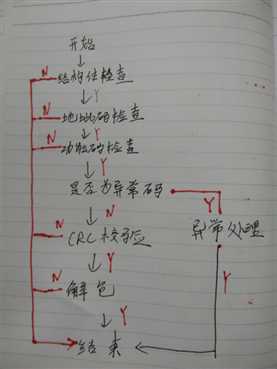 开始
N 结构体检查
Y
N 地址码检查
Y
N 功能码检查
Y
是否为异常码 Y 异常处理
N N
CRC校验 Y
N Y
解包
Y
结束